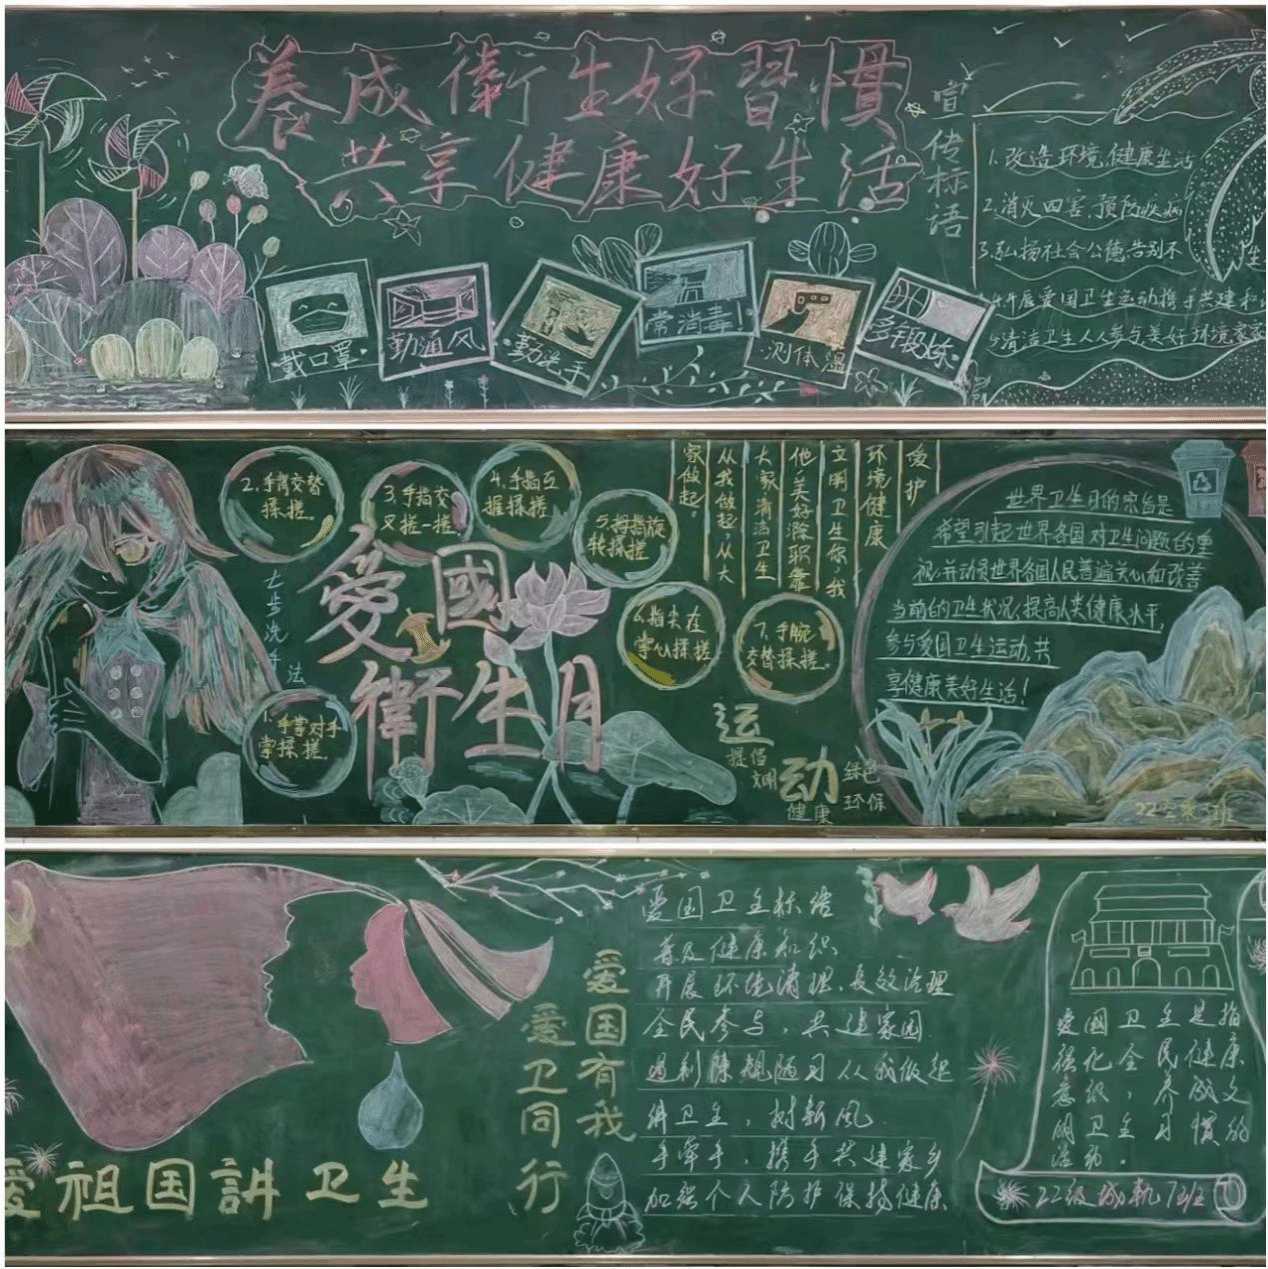 養成衛生好習慣
共享健康好生活
戴口罩
勤通风
勤洗手
常消毒
测体温
多锻炼
宣传标语
1.改造环境,健康生活
2.消灭四害,预防疾病
3.弘扬社会公德,告别不
生
4.开展爱国卫生运动携手共建和
5.清洁卫生人人参与美好环境家家
愛國
衛生月
七步洗手法
1.手掌对手
掌揉搓。
2.手背交替
揉搓。
3.手指交
叉搓一搓。
4.手指互
握揉搓
5.拇指旋
转揉搓
6.指尖在
掌心揉搓
7.手腕
交替揉搓。
爱护
环境健康
文明卫生你我
他美好滁职靠
大家清洁卫生
从我做起,从大
家做起。
运
动
提倡
文明
健康
绿色
环保
世界卫生月的宗旨是
希望引起世界各国对卫生问题的重
视,并动员世界各国人民普遍关心和改善
当前的卫生状况,提高人类健康水平,
参与爱国卫生运动,共
享健康美好生活!
爱祖国讲卫生
爱国有我
爱卫同行
爱国卫生标语
普及健康知识
开展环境清理,长效治理
全民参与,共建家园
遏制陈规陋习从我做起
讲卫生,树新风
手牵手,携手共建家乡
加强个人防护保持健康
爱國卫生是指
强化全民健康
意识,养成文
明卫生习惯的
活动。
22级城轨7班